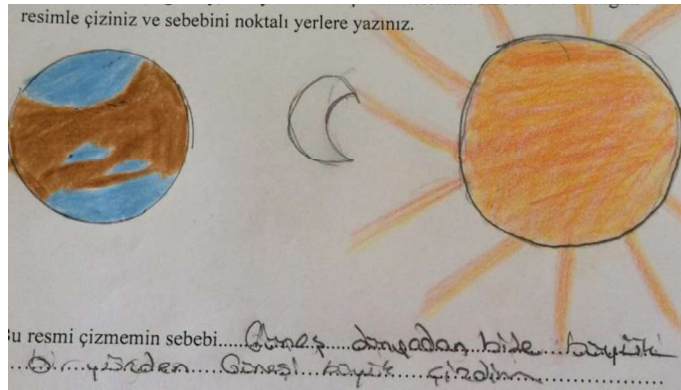 resimle çiziniz ve sebebini noktalı yerlere yazınız.
Bu resmi çizmemin sebebi.....Güneş....dünyadan..bile....büyük
..O...yüzden.....Güneşi...büyük....çizdim...................